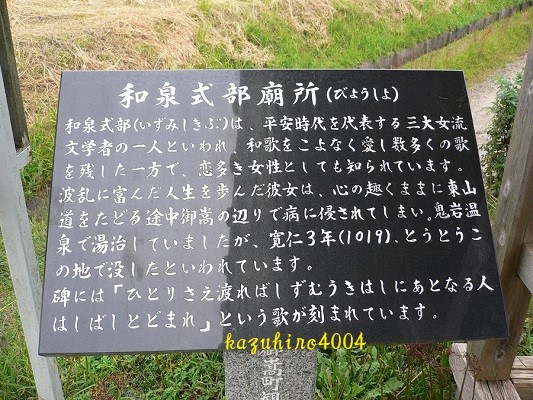 和泉式部廟所(びょうしょ)
和泉式部(いずみしきぶ)は、平安時代を代表する三大女流
文学者の一人といわれ、和歌をこよなく愛し数多くの歌
を残した一方で、恋多き女性としても知られています。
波乱に富んだ人生を歩んだ彼女は、心の趣くままに東山
道をたどる途中御嵩の辺りで病に侵されてしまい。鬼岩温
泉で湯治していましたが、寛仁3年(1019)、とうとうこ
の地で没したといわれています。
碑には「ひとりさえ渡ればしずむうきはしにあとなる人
はしばしとどまれ」という歌が刻まれています。
kazuhiro4004
御嵩町観